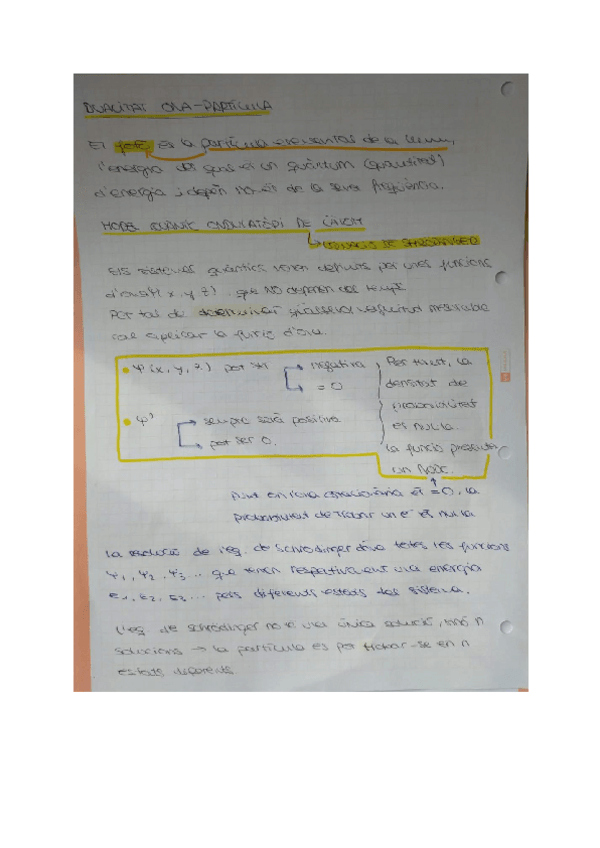 DUALITAT ONA-PARTÍCULA
El fotó és la partícula elemental de la llum,
l'energia del qual és un quàntum (quantitat)
d'energia i depèn només de la seva freqüència.
MODEL QUÀNTIC ONDULATORI DE L'ÀTOM
SCHRODINGER
Els sistemes quàntics venen definits per unes funcions
d'ona Ψ(x, y, z) que NO depenen del temps.
Per tal de determinar qualsevol magnitud mesurable
cal aplicar la funció d'ona.
• Ψ(x, y, z) pot ser → negativa
→ = 0
• Ψ² → sempre serà positiva
→ pot ser 0.
Per tant, la
densitat de
probabilitat
és nul·la.
la funció presenta
un NODE.
punt en l'ona estacionària és = 0, la
probabilitat de trobar un e⁻ és nul·la
La resolució de l'eq. de Schrödinger dóna totes les funcions
Ψ1, Ψ2, Ψ3... que tenen respectivament una energia
E1, E2, E3... pels diferents estats del sistema.
L'eq. de Schrödinger no té una única solució, sinó n
solucions → la partícula es pot trobar-se en n
estats diferents